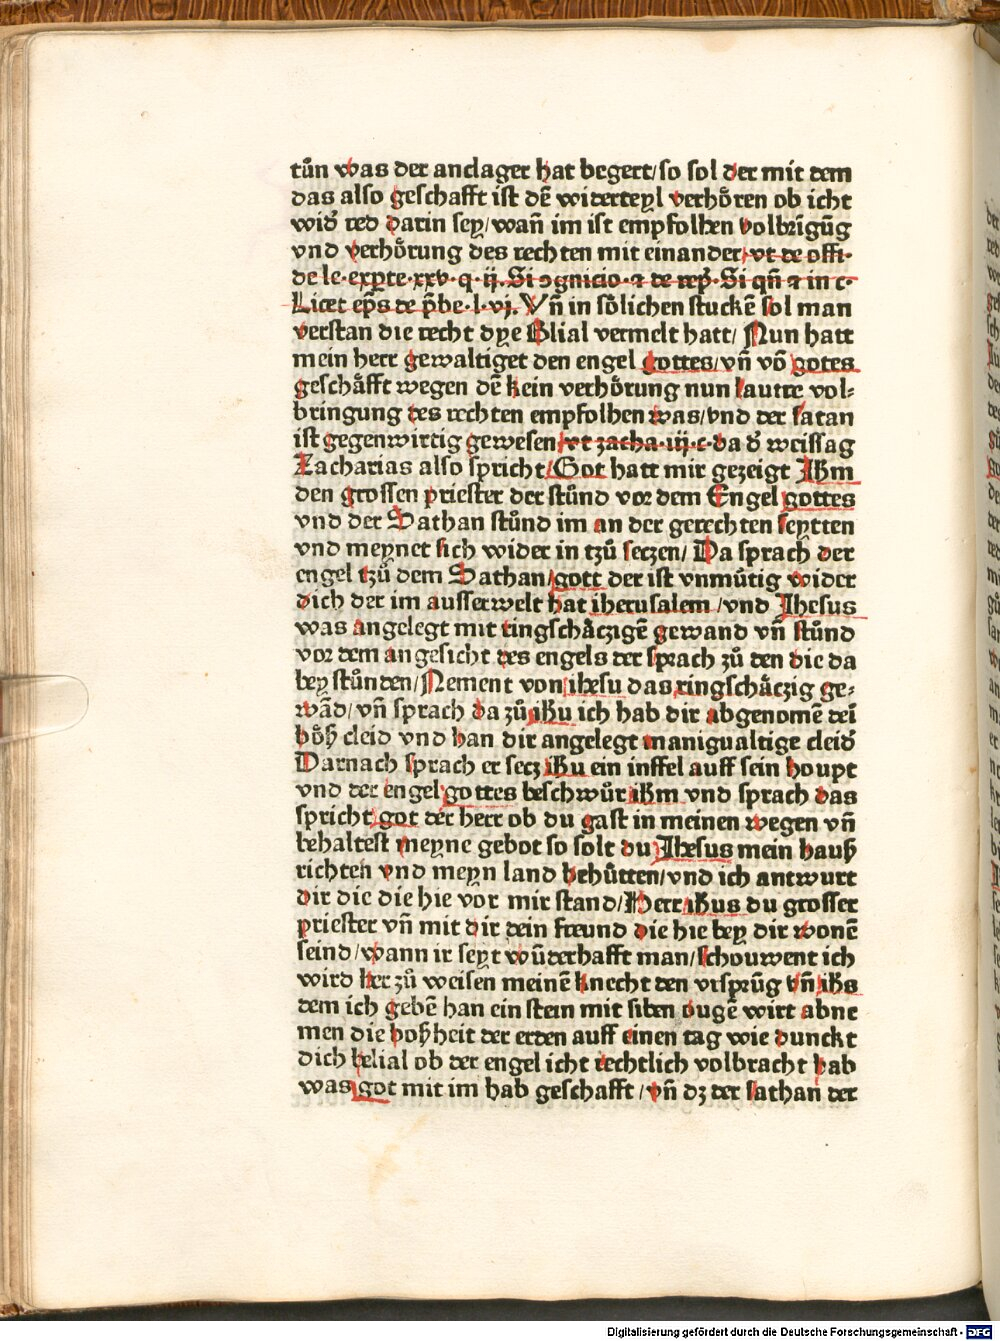 tůn was der anclager hat begert/so sol der mit dem
das also geschafft ist dē widerteyl verhŏren ob icht
wid̛ red darin sey/wañ im ist empfolhen volbrīgūg
vnd verhŏrung des rechten mit einander/vt de offi·
de le·exp̱te·xxv·q·ij·Si ɔgnicio·⁊ de rep̄·Si qñ ⁊ in c·
Licet ep̄s de p̄be·l·vj. Vñ in sŏlichen stuckē sol man
verstan die recht dye Blial vermelt hatt/ Nun hatt
mein herr gewaltiget den engel gottes/vñ vō gotes
geschăfft wegen dē kein verhŏrung nun lautre vol⸗
bringung des rechten empfolhen was/vnd der satan
ist gegenwirtig gewesen/vt zacha·iij·c·da d̛ weissag
Zacharias also spricht/Got hatt mir gezeigt Jhm̄
den grossen priester der stůnd vor dem Engel gottes
vnd der Sathan stůnd im an der gerechten seytten
vnd meynet sich wider in tzů seczen/ Da sprach der
engel tzů dem Sathan/gott der ist vnmůtig wider
dich der im ausserwelt hat iherusalem /vnd Jhesus
was angelegt mit ringschăczigē gewand vñ stůnd
vor dem angesicht des engels der sprach zů den die da
bey stůnden/Nement von ihesu das ringschăczig ge⸗
wād/vñ sprach da zů ihu ich hab dir abgenomē dei
bŏß cleid vnd han dir angelegt manigualtige cleid̛
Darnach sprach er secz ihu ein inffel auff sein houpt
vnd der engel gottes beschwůr ihm vnd sprach das
spricht got der herr ob du gast in meinen wegen vñ
behaltest meyne gebot so solt du Jhesus mein hauß
richten vnd meyn land behůtten/vnd ich antwurt
dir die die hie vor mir stand/Herr ihus du grosser
priester vñ mit dir dein freund die hie bey dir wonē
seind/wann ir seyt wūderhafft man/schouwent ich
wird her zů weisen meinē knecht den vrsprūg vñ ihs
dem ich gebē han ein stein mit siben ougē wirt abne
men die boßheit der erden auff einen tag wie dunckt
dich belial ob der engel icht rechtlich volbracht hab
was got mit im hab geschafft /vñ dz der sathan der
Digitalisierung gefördert durch die Deutsche Forschungsgemeinschaft - DFG